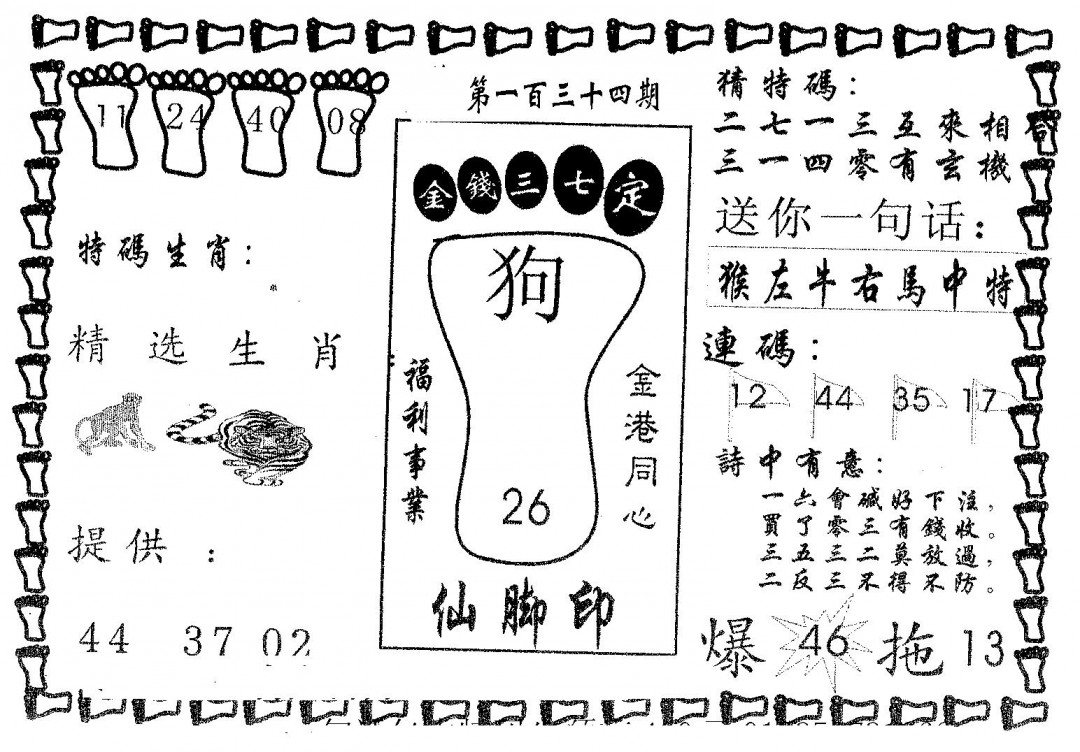 11 24 40 08
特碼生肖：
精选生肖
提供：
44 37 02
第一百三十四期
金錢三七定
狗
福利事業
金港同心
26
仙脚印
猜特碼：
二七一三五來相合
三一四零有玄機
送你一句话：
猴左牛右馬中特
連碼：
12 44 35 17
詩中有意：
一六會碱好下注，
買了零三有錢收。
三五三二莫放過，
二反三不得不防。
爆 46 拖 13